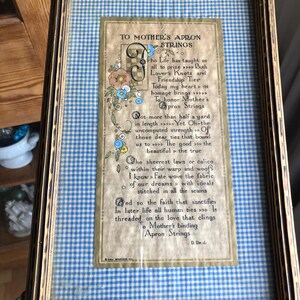 TO MOTHER'S APRON
STRINGS
The Life has taught us
all to prize Both
Lover's Knots and
Friendship Ties
Today my heart its
homage brings
To honor Mother's
Apron Strings
Not more than half a yard
in length Yet Oh the
uncomputed strength Of
those dear ties that bound
us to The good
beautiful & true
The sheerest lawn or calico
within their warp and woof
I know Fate wove the fabric
of our dreams with ideals
stitched in all the seams
And so the faith that sanctifies
In later life all human ties Is
threaded on the love that clings
To Mother's binding
Apron Strings